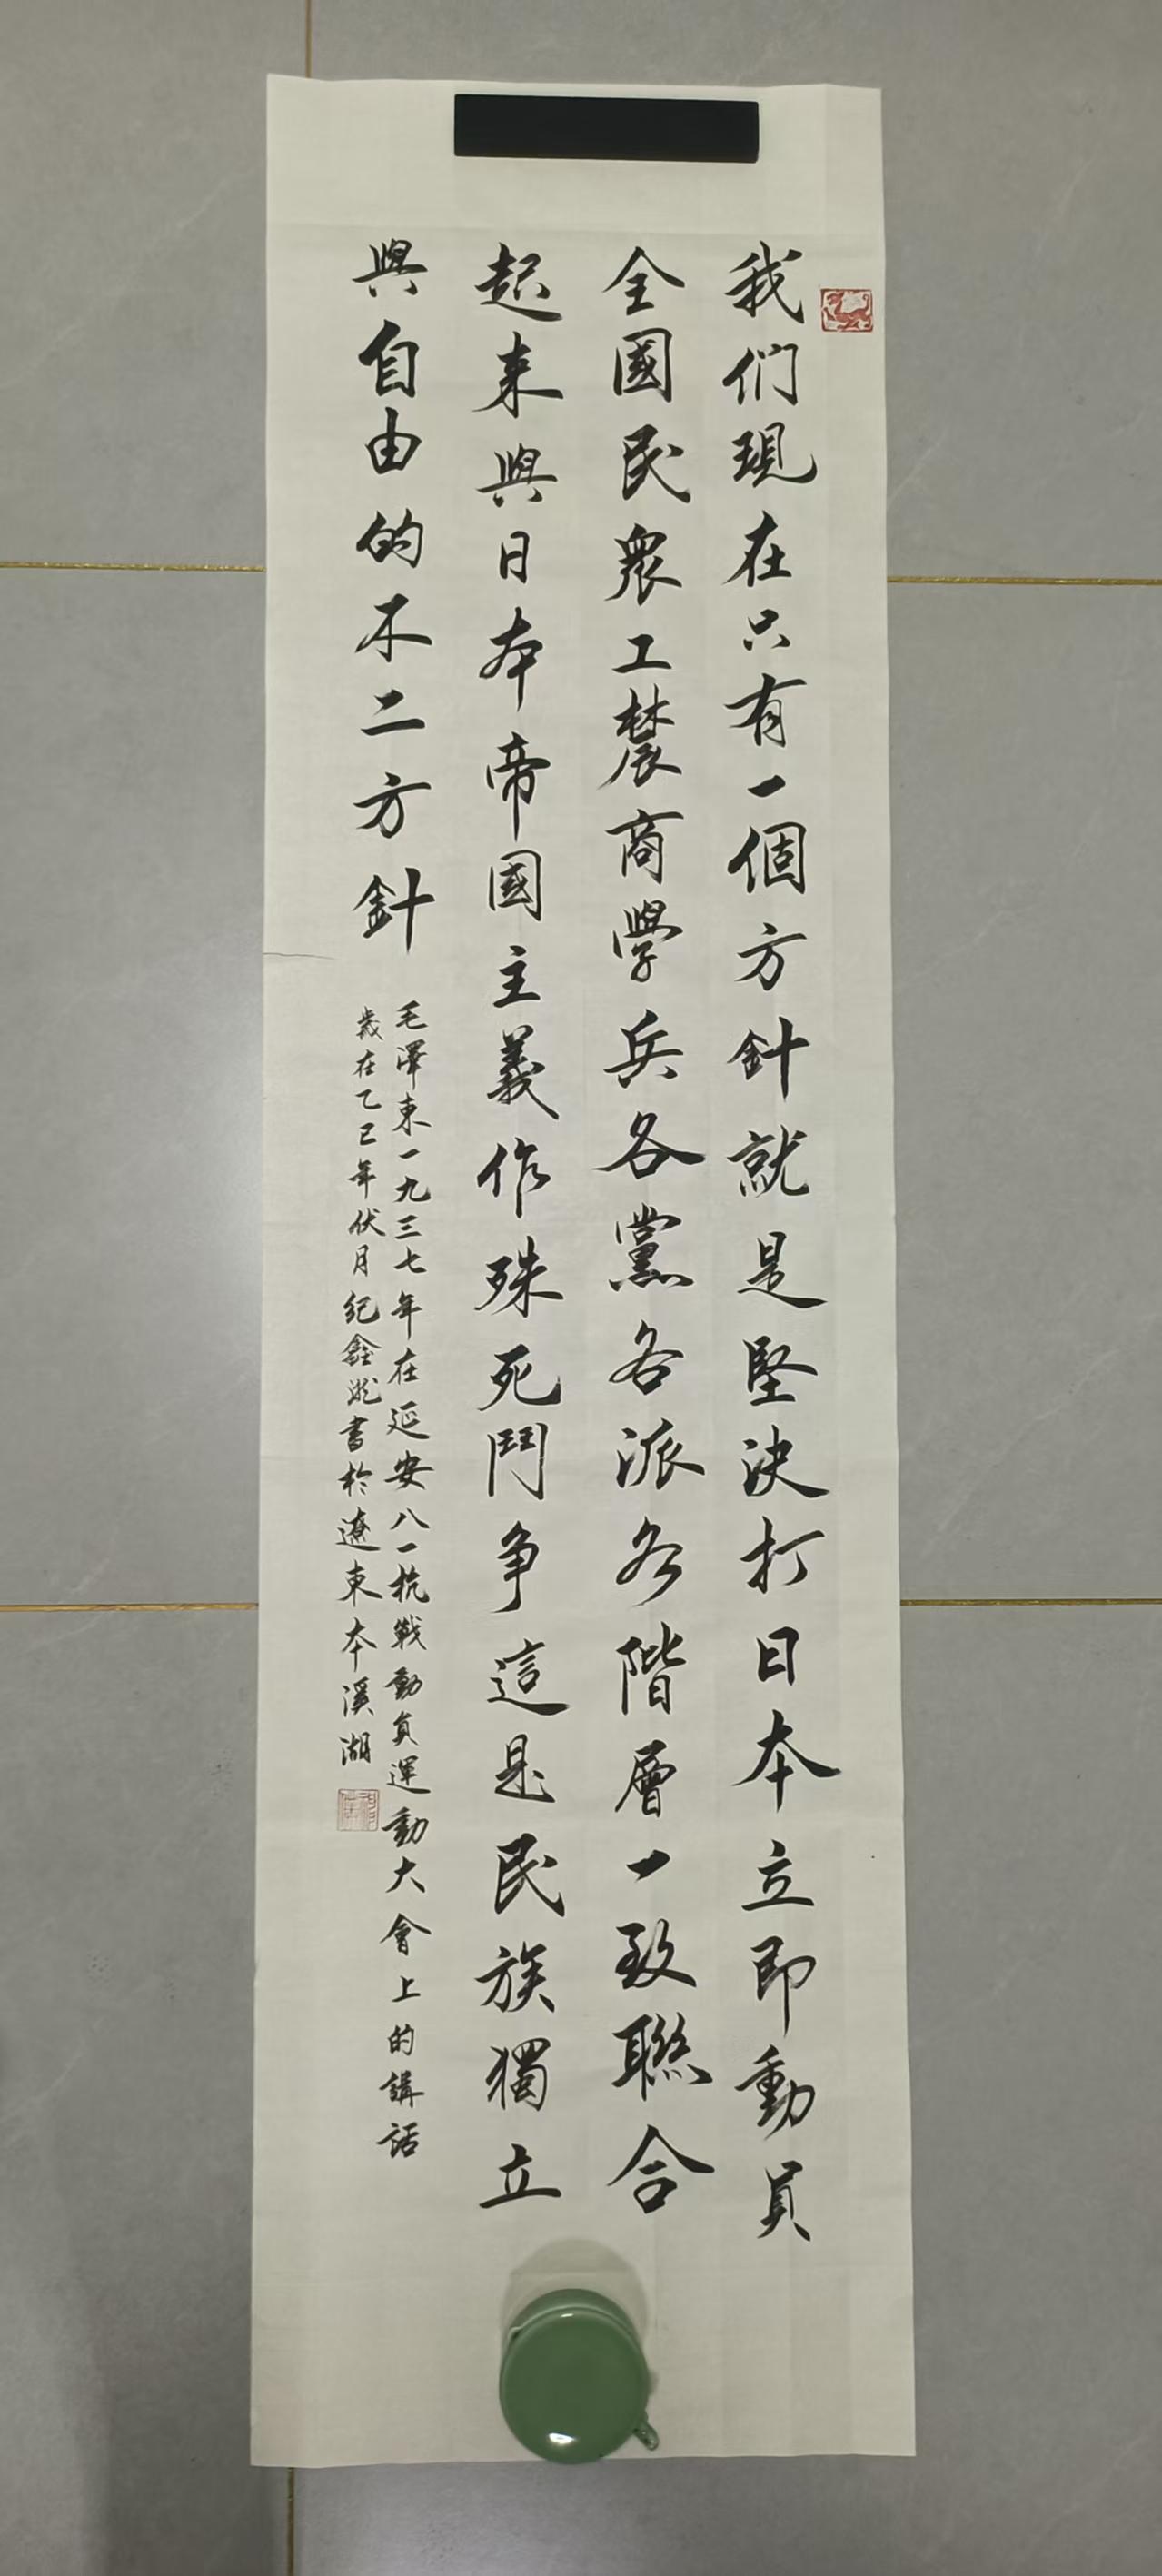 我们現在只有一個方針就是堅決打日本立即動員
全國民衆工農商學兵各黨各派各階層一致聯合
起来與日本帝國主義作殊死鬥争這是民族獨立
與自由的不二方針
毛澤東一九三七年在延安八一抗戰動員運動大會上的講話
歲在乙巳年伏月紀鑫淞書於遼東本溪湖